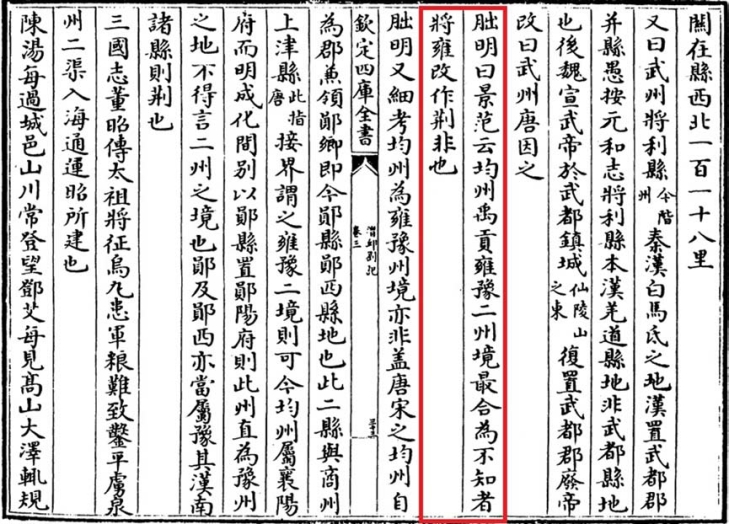 關在縣西北一百一十八里
又曰武州將利縣今階州秦漢白馬氐之地漢置武都郡
并縣愚按元和志將利縣本漢羌道縣地非武都縣地
也後魏宣武帝於武都鎮城仙陵山之東復置武都郡廢帝
改曰武州唐因之
朏明曰景范云均州禹貢雍豫二州境最合為不知者
將雍改作荆非也
朏明又細考均州為雍豫州境亦非蓋唐宋之均州自
欽定四庫全書
潛邱劄記
卷三
為郡兼領鄖鄉即今鄖縣鄖西縣地也此二縣與商州
上津縣此指唐接界謂之雍豫二境則可今均州屬襄陽
府而明成化間別以鄖縣置鄖陽府則此州直為豫州
之地不得言二州之境也鄖及鄖西亦當屬豫其漢南
諸縣則荆也
三國志董昭傳太祖將征烏丸患軍糧難致鑿平虜泉
州二渠入海通運昭所建也
陳湯每過城邑山川常登望鄧艾每見高山大澤輒規